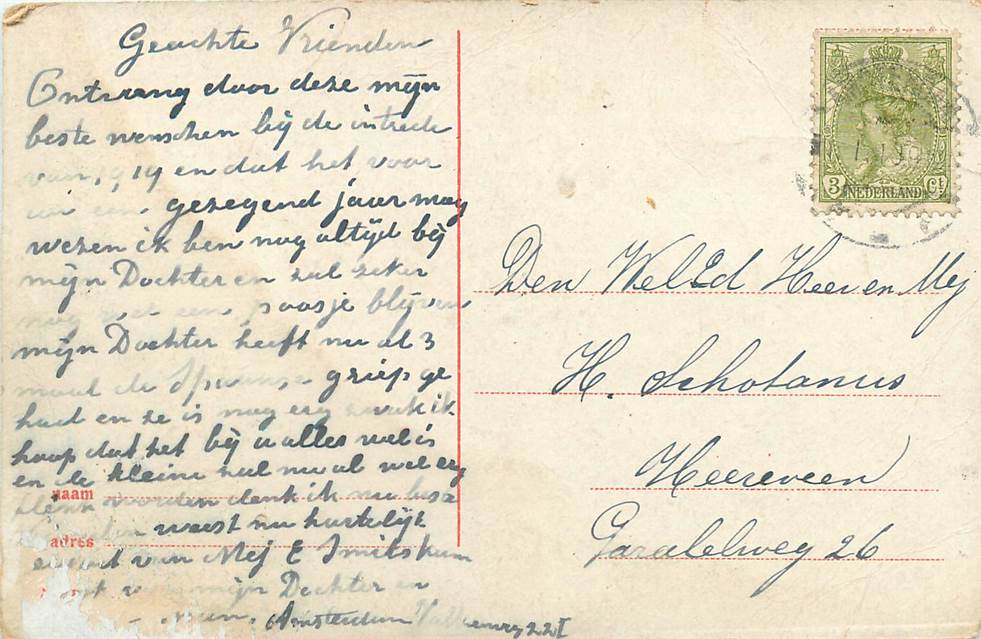 Geachte Vrienden
Ontvang door deze mijn
beste wenschen bij de intrede
van 1919 en dat het voor
een gezegend jaar mag
wezen ik ben nog altijd bij
mijn Dochter en zal zeker
nog wel een poosje blijven
mijn Dochter heeft nu al 3
maal de Spaanse griep ge
had en ze is nog erg zwak ik
hoop dat het bij u alles wel is
en de kleine zal nu al wel erg
worden denk ik nu beste
weest nu hartelijk
van Mej E Smits
mijn Dochter en
Amsterdam 22 I
naam
adres
3 NEDERLAND Ct
Den WelEd Heer en Mej
H. Schotanus
Heereveen
Paralelweg 26